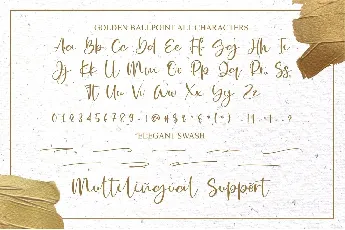 GOLDEN BALLPOINT ALL CHARACTERS
Aa Bb Cc Dd Ee Ff Gg Hh Ii
Jj Kk Ll Mm Oo Pp Qq Rr Ss
Tt Uu Vv Ww Xx Yy Zz
*ELEGANT SWASH
Multilingual Support